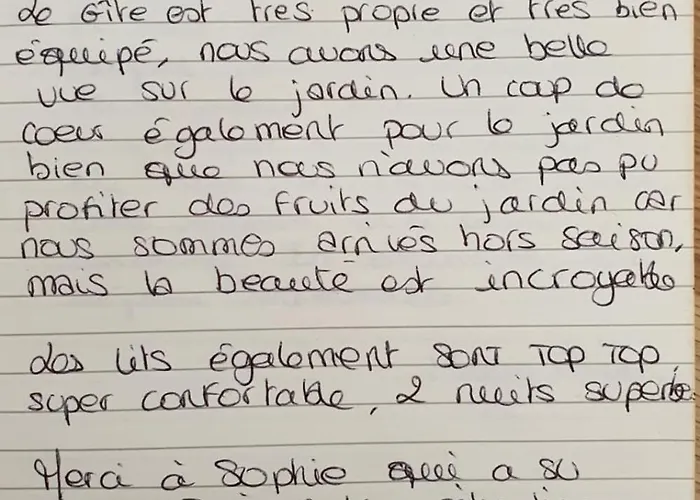 de Gîte est très propre et très bien
équipé, nous avons une belle
vue sur le jardin. Un cap de
coeur également pour le jardin
bien que nous n'avons pas pu
profiter des fruits du jardin car
nous sommes arrivés hors saison,
mais la beauté est incroyable
des lits également sont TOP TOP,
super confortable, 2 nuits superbe.
Merci à Sophie qui a su